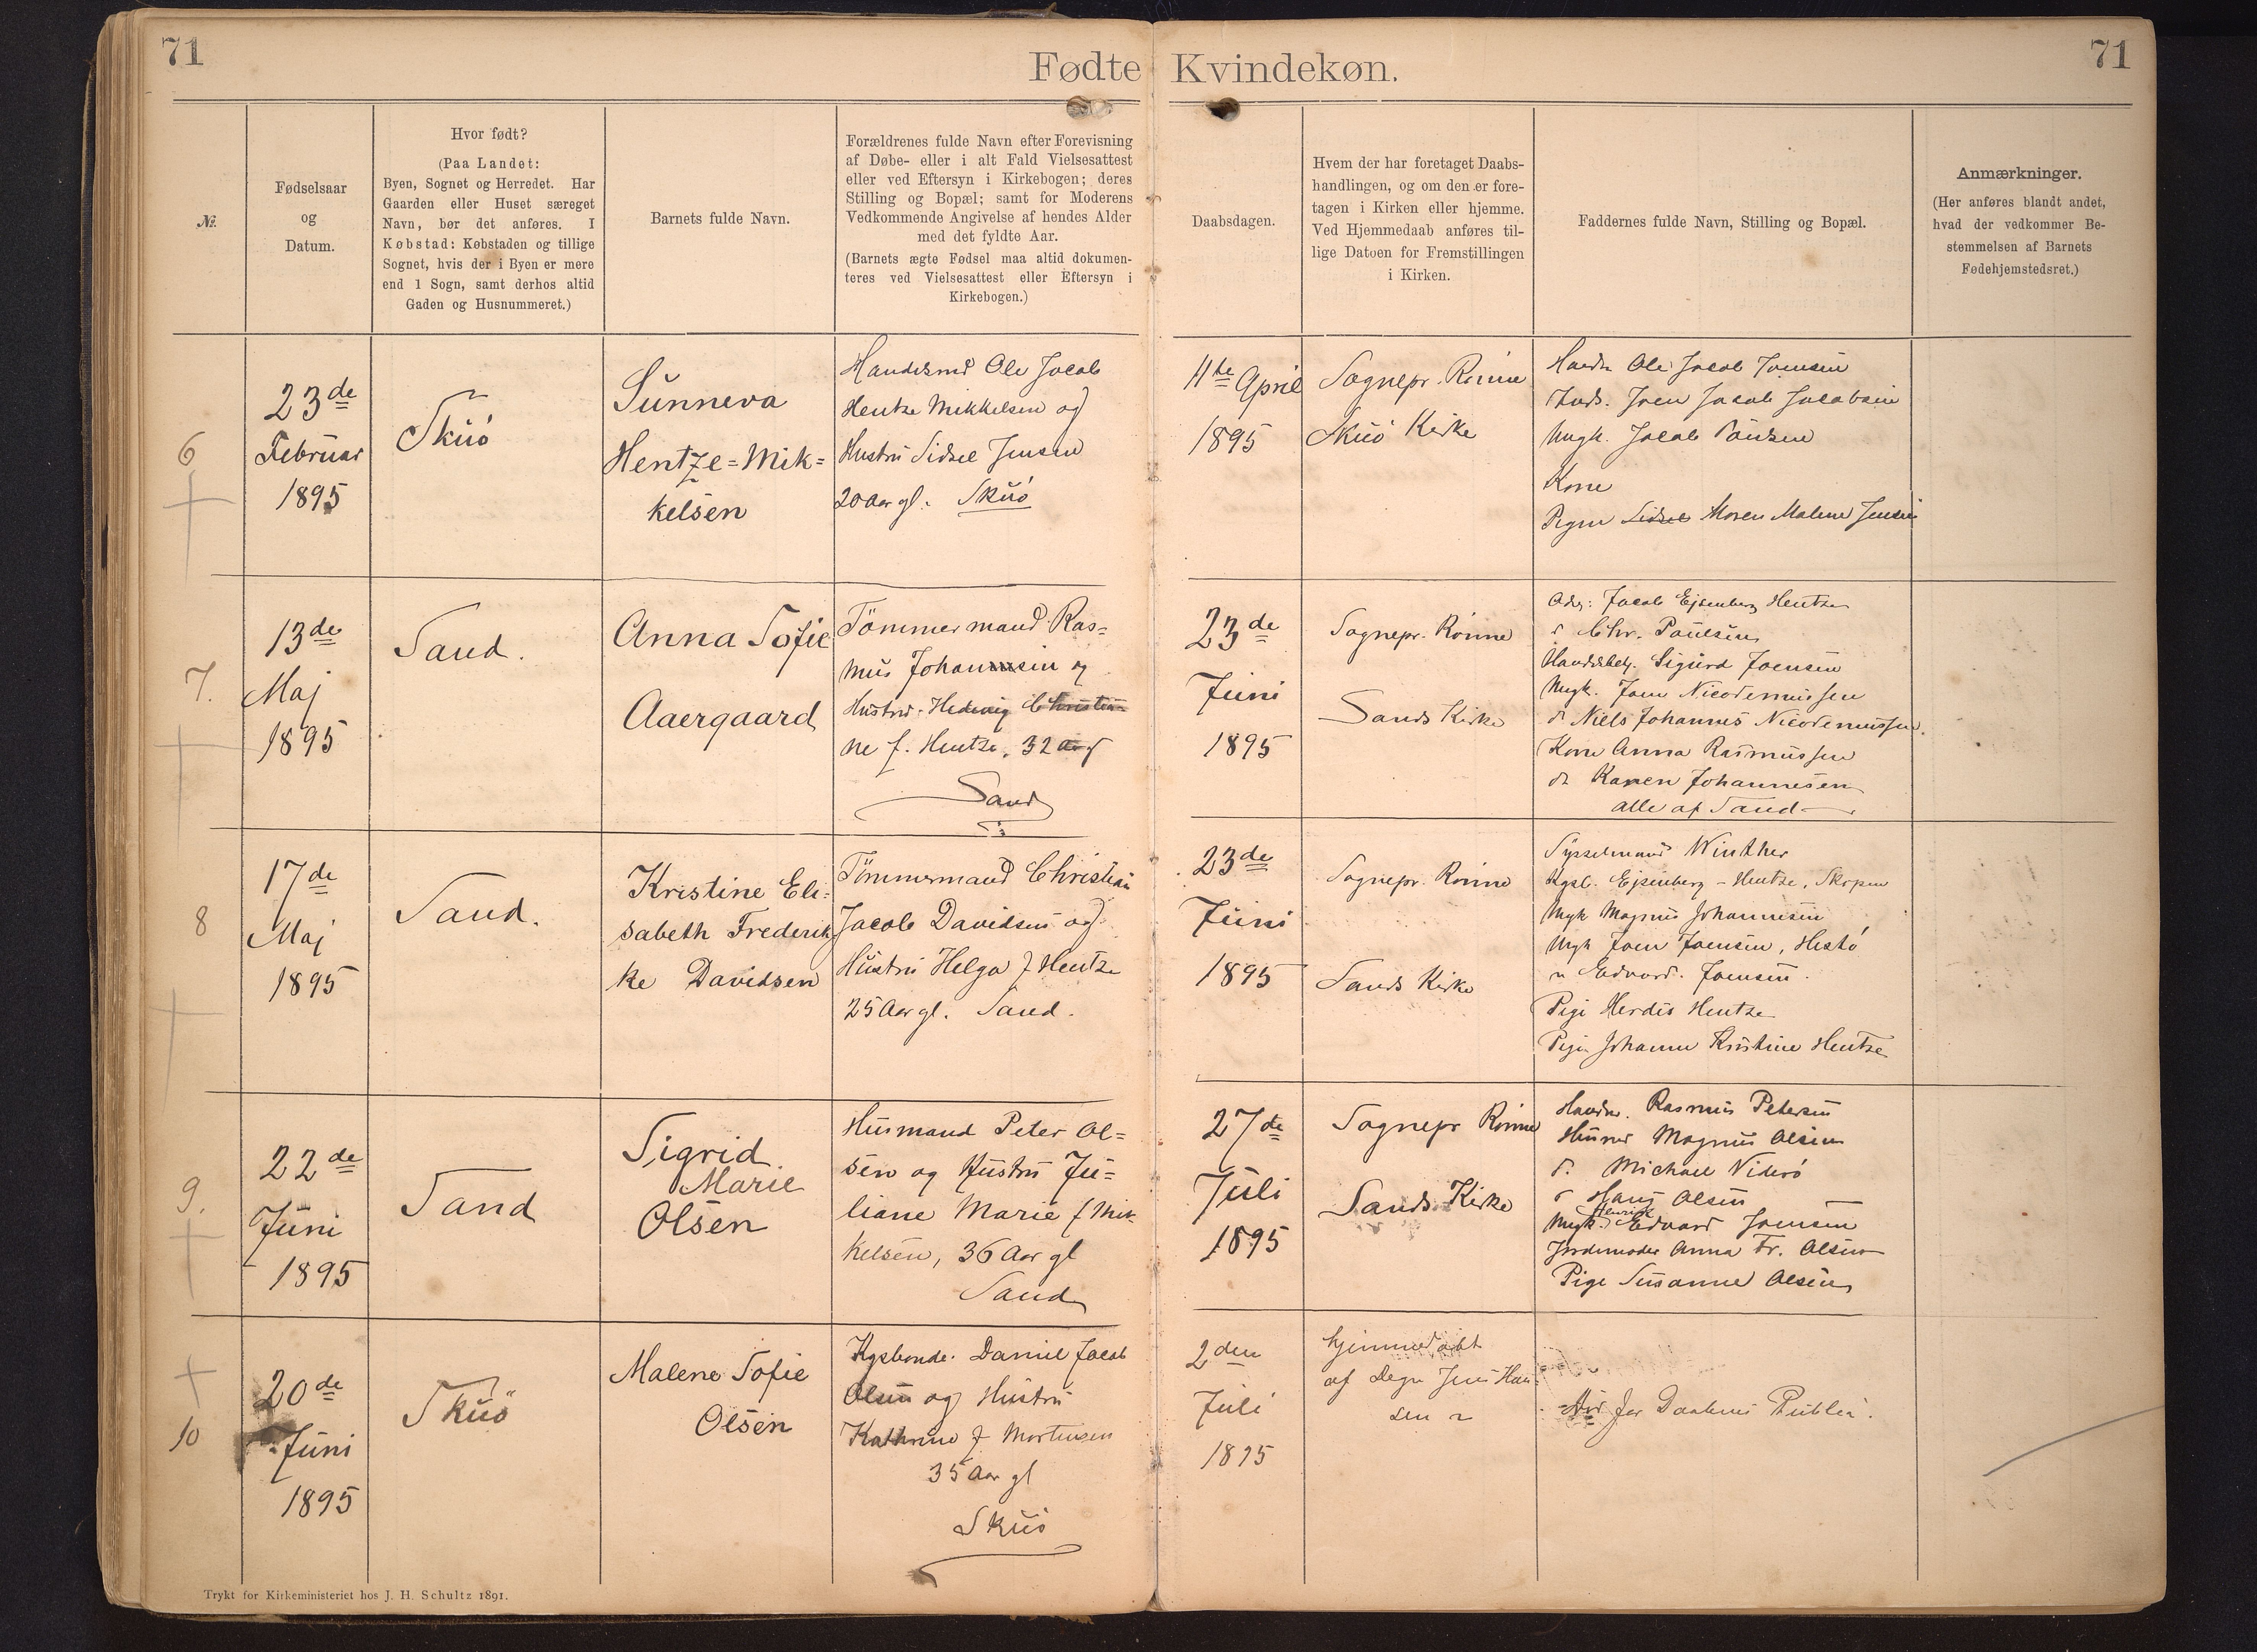 71
Fødte Kvindekøn.
71
№.
Fødselsaar
og
Datum.
Hvor født?
(Paa Landet:
Byen, Sognet og Herredet. Har
Gaarden eller Huset særeget
Navn, bør det anføres. I
Købstad: Købstaden og tillige
Sognet, hvis der i Byen er mere
end 1 Sogn, samt derhos altid
Gaden og Husnummeret.)
Barnets fulde Navn.
Forældrenes fulde Navn efter Forevisning
af Døbe- eller i alt Fald Vielsesattest
eller ved Eftersyn i Kirkebogen; deres
Stilling og Bopæl; samt for Moderens
Vedkommende Angivelse af hendes Alder
med det fyldte Aar.
(Barnets ægte Fødsel maa altid dokumen-
teres ved Vielsesattest eller Eftersyn i
Kirkebogen.)
Daabsdagen.
Hvem der har foretaget Daabs-
handlingen, og om den er fore-
tagen i Kirken eller hjemme.
Ved Hjemmedaab anføres til-
lige Datoen for Fremstillingen
i Kirken.
Faddernes fulde Navn, Stilling og Bopæl.
Anmærkninger.
(Her anføres blandt andet,
hvad der vedkommer Be-
stemmelsen af Barnets
Fødehjemstedsret.)
6
23de
Februar
1895
Skuö
Sunneva
Hentze=Mik=
kelsen
Ole Jacob
Hentze Mikkelsen og
Hustru Sidsel Jensen
20 Aar gl. Skuö
11te April
1895
Sognepr. Rönne
Skuö Kirke
Ole Jacob Joensen
Joen Jacob Jacobsen
Ungk. Jacob Poulsen
Kone
Pigen Sidsel Maren Malene Jensen
7.
13de
Maj
1895
Sand.
Anna Sofie
Aaergaard
Tömmermand Ras=
mus Johannesen og
Hustru Hedevig Christia=
ne f. Hentze, 32 Aar gl
Sand
23de
Juni
1895
Sognepr. Rönne
Sands Kirke
Jacob Ejsenberg Hentze
d Chr. Poulsen
Handelsbetj. Sigurd Joensen
Ungk. Joen Nicodemussen
do Niels Johannes Nicodemussen.
Kone Anna Rasmussen
do Karen Johannesen
alle af Sand
8
17de
Maj
1895
Sand.
Kristine Eli=
sabeth Frederik
ke Davidsen
Tömmermand Christian
Jacob Davidsen og
Hustru Helga f Hentze
25 Aar gl. Sand.
23de
Juni
1895
Sognepr. Rönne
Sands Kirke
Sysselmand Winther
Kgsb. Ejsenberg - Hentze, Skopen
Ungk Magnus Johannesen
Ungk Joen Joensen, Hestö
" Edvard Joensen.
Pige Herdis Hentze
Pige Johanne Kristine Hentze
9.
22de
Juni
1895
Sand
Sigrid
Marie
Olsen
Husmand Peter Ol=
sen og Hustru Ju=
liane Marie f Mik
kelsen, 36 Aar gl
Sand
27de
Juli
1895
Sognepr Rönne
Sands Kirke
Rasmus Petersen
Magnus Olsen
d. Michael Viderö
d Hans Olsen
Ungk. Henrik Edvard Joensen
Jordemoder Anna Fr. Olsen
Pige Susanne Olsen
10
20de
Juni
1895
Skuö
Malene Sofie
Olsen
Kgsbonde Daniel Jacob
Olsen og Hustru
Kathrine f Mortensen
35 Aar gl
Skuö
2den
Juli
1895
hjemmedöbt
af Degn Jens Han
sen
för Daabens Public.
Trykt for Kirkeministeriet hos J. H. Schultz 1891.